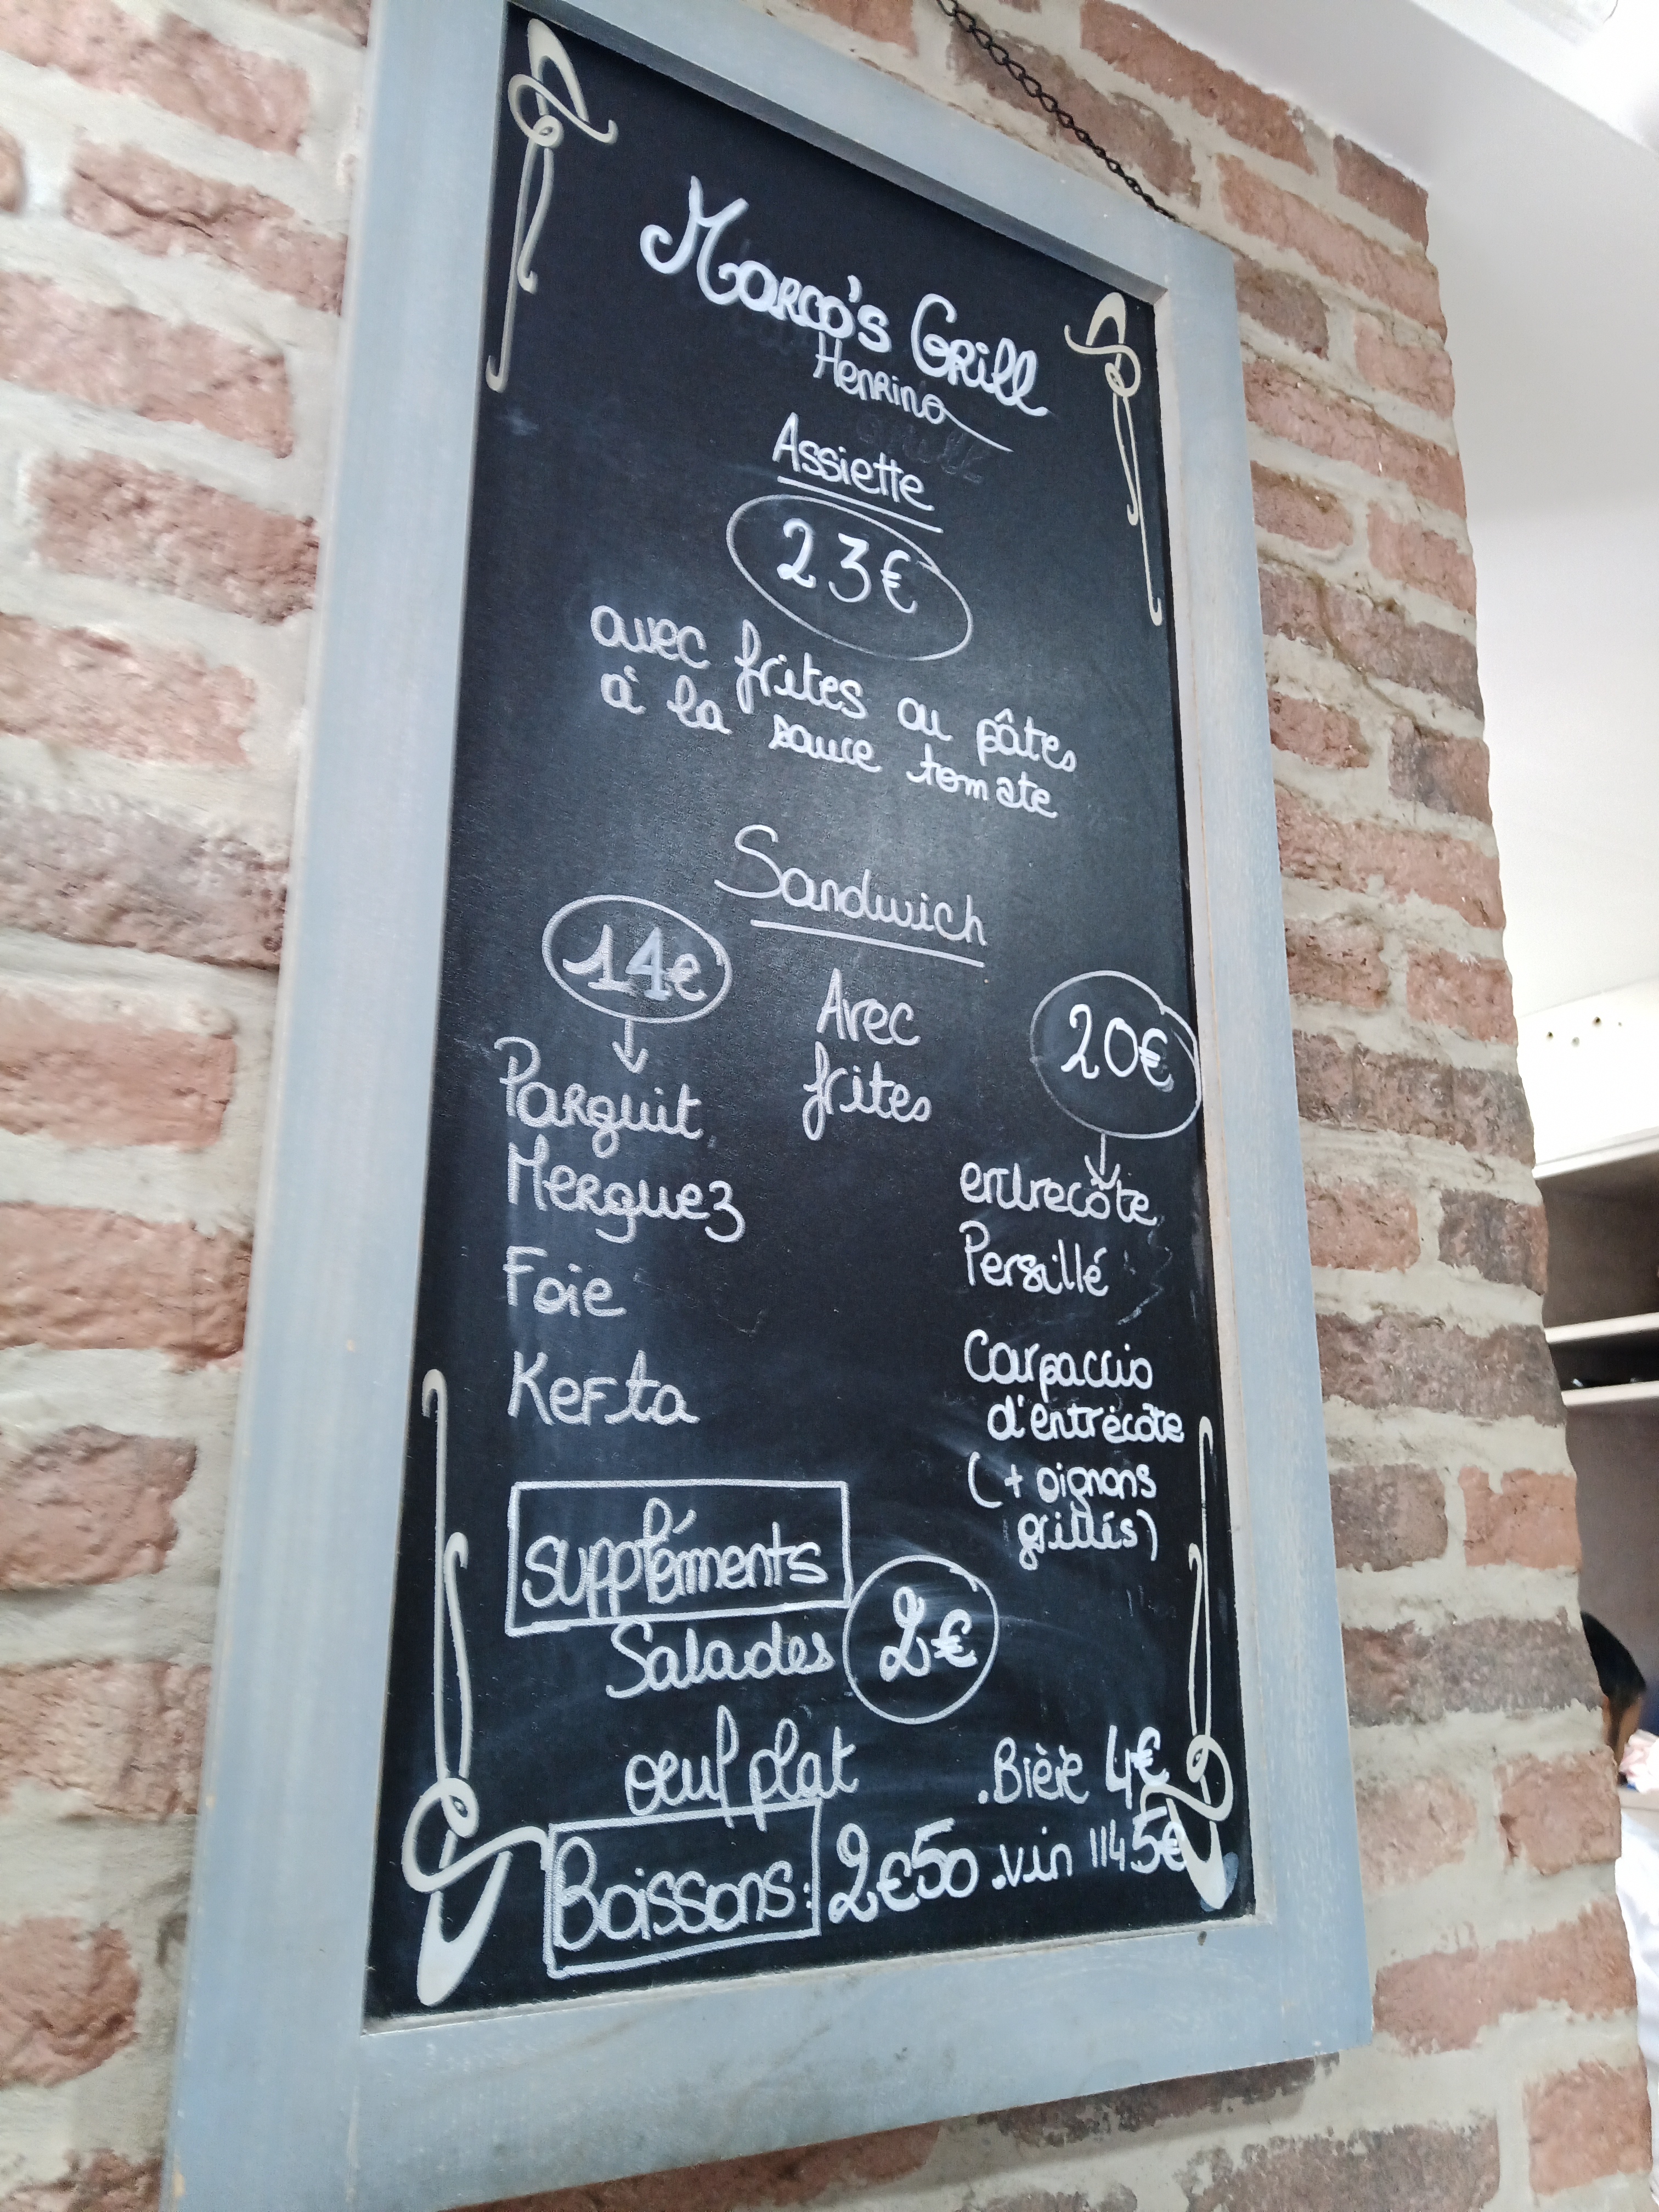 Marco's Grill
Henrino
Assiette
23€
avec frites ou pâtes
à la sauce tomate
Sandwich
14€
Avec
frites
20€
Parguit
Merguez
Foie
Kefta
entrecôte
Persillé
Carpaccio
d'entrecôte
(+ oignons
grillés)
suppléments
Salades
2€
oeuf plat
.Bière 4€
Boissons: 2€50 .vin 1/4 5€